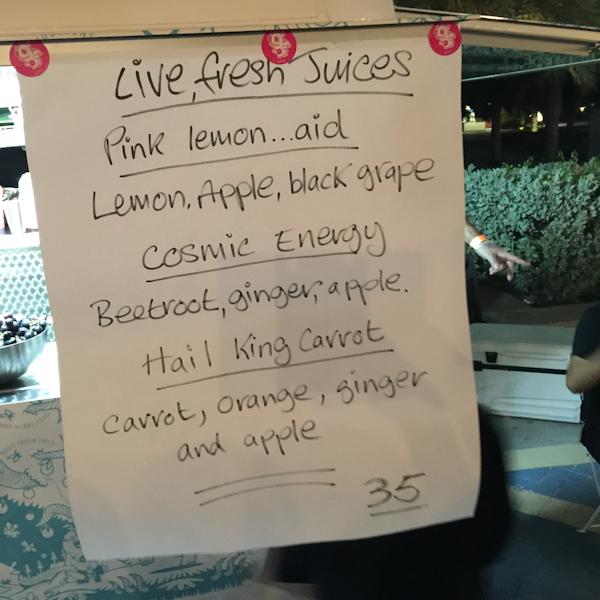 Live, fresh Juices
Pink lemon...aid
Lemon, Apple, black grape
Cosmic Energy
Beetroot, ginger, apple.
Hail King Carrot
Carrot, orange, ginger
and apple
35